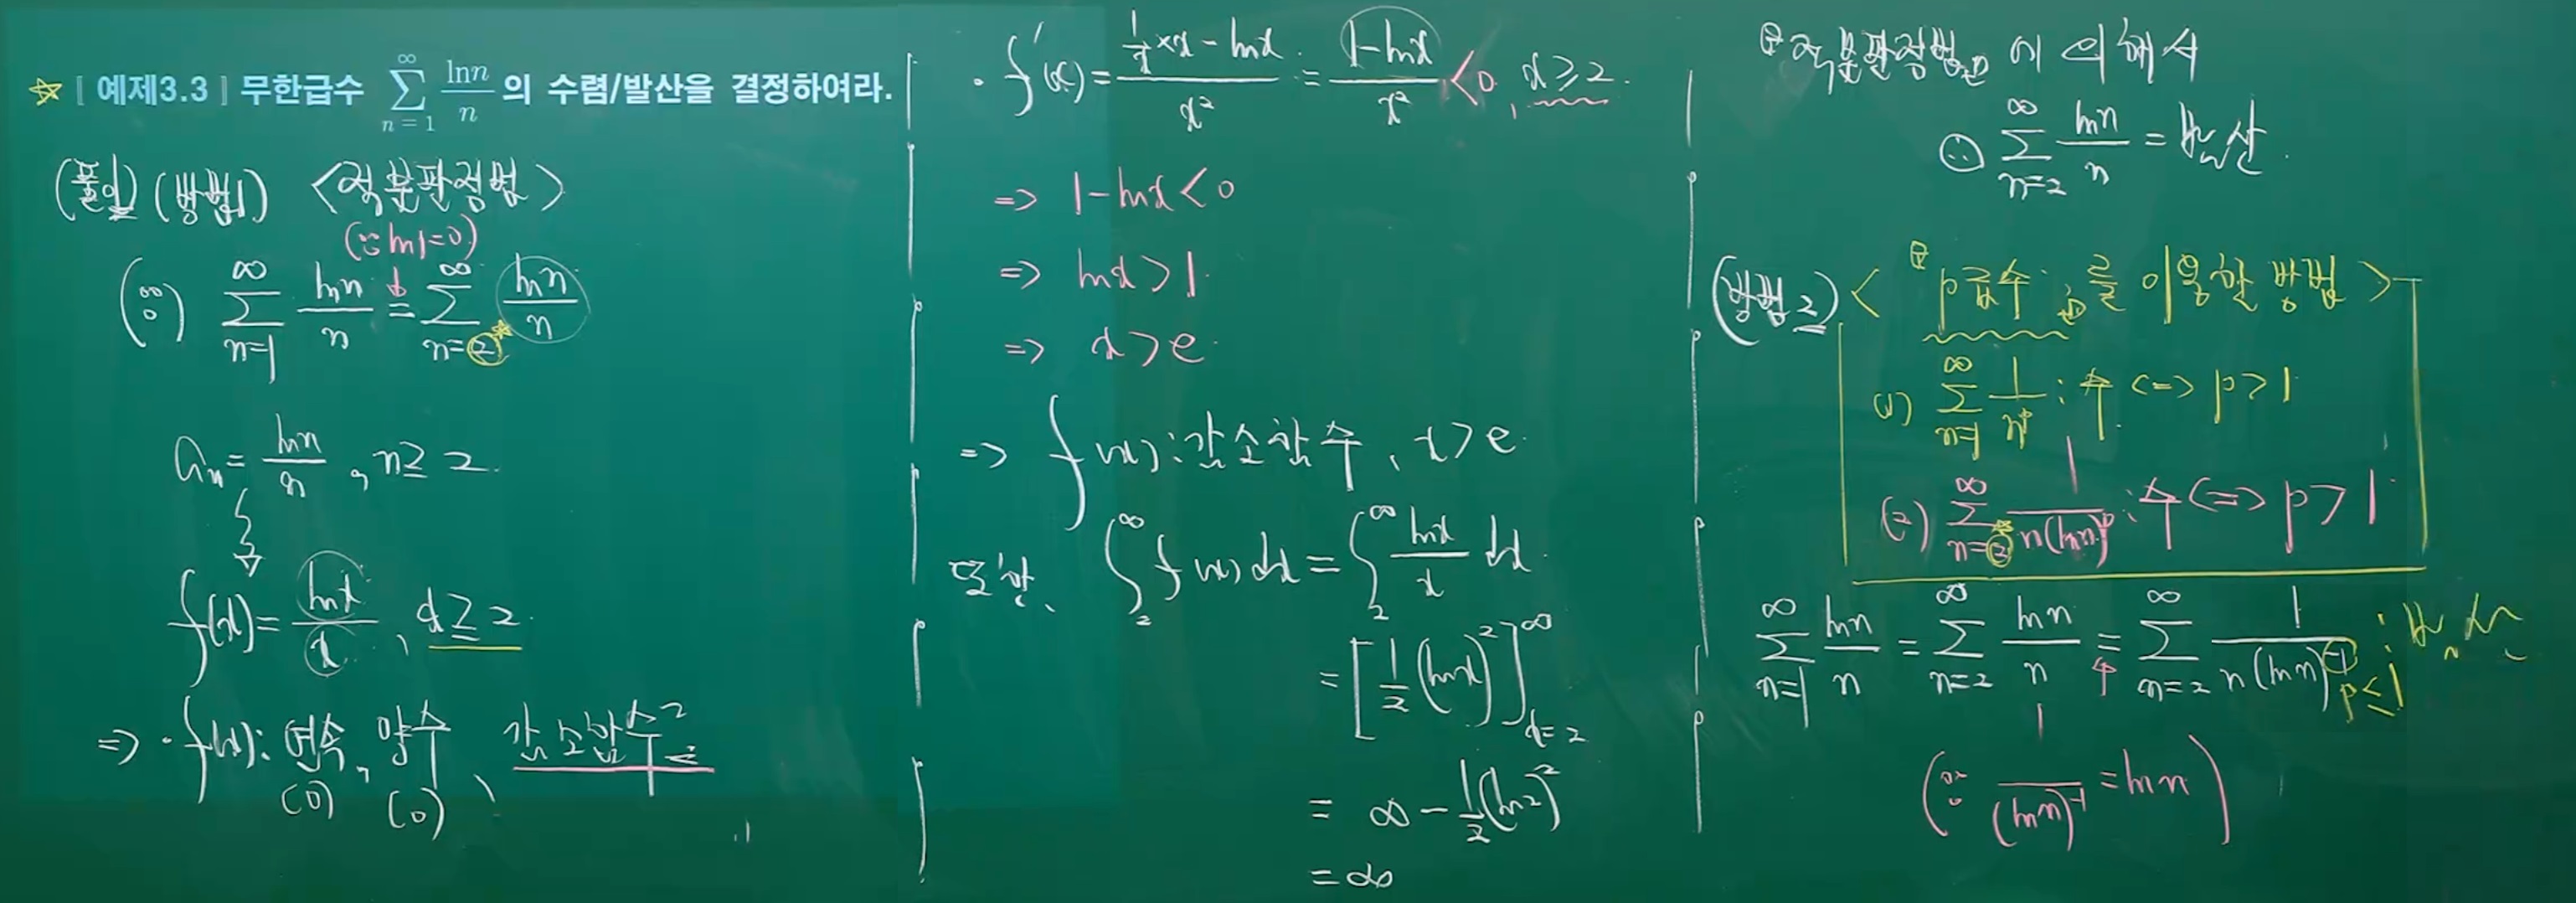 ☆ [ 예제3.3 ] 무한급수 ∑_{n=1}^{∞} lnn/n 의 수렴/발산을 결정하여라.
(풀이) (방법1) <적분판정법>
(∵ ln1=0)
(∵) ∑_{n=1}^{∞} lnn/n = ∑_{n=2}^{∞} lnn/n
aₙ = lnn/n , n≥2
f(x) = lnx/x , x≥2
=> · f(x): 연속, 양수, 감소함수?
(O) (O)
· f'(x) = (1/x × x - lnx)/x² = (1-lnx)/x² < 0, x≥2.
=> 1-lnx < 0
=> lnx > 1
=> x > e
=> f(x): 감소함수, x > e
또한, ∫_2^∞ f(x)dx = ∫_2^∞ lnx/x dx
= [1/2 (lnx)²]_{x=2}^∞
= ∞ - 1/2 (ln2)²
= ∞
적분판정법 에 의해서
∴ ∑_{n=2}^{∞} lnn/n = 발산.
(방법2) < "p급수"를 이용한 방법 >
(1) ∑_{n=1}^{∞} 1/n^p : 수 <=> p > 1
(2) ∑_{n=2}^{∞} 1/(n(lnn)^p) : 수 <=> p > 1
∑_{n=1}^{∞} lnn/n = ∑_{n=2}^{∞} lnn/n = ∑_{n=2}^{∞} 1/(n(lnn)^{-1}) : 발산
p≤1
(∵ 1/(lnn)^{-1} = lnn)